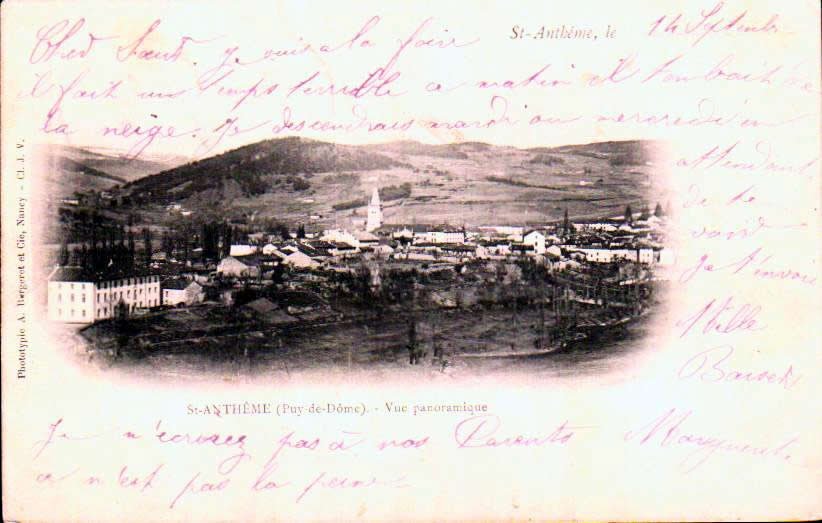 St-Anthême, le 14 Septembre
Cher Sœur. je vais a la foire
il fait un temps terrible ce matin il tombait de
la neige. Je descendrais mardi ou mercredi en
attendant
de te
voir
je t'envois
Mille
Baisers
Marguerite
Phototypie A. Bergeret et Cie, Nancy - Cl. J. V.
St-ANTHÊME (Puy-de-Dôme). - Vue panoramique
Je n'ecrivez pas à nos Parents
ce n'est pas la peine